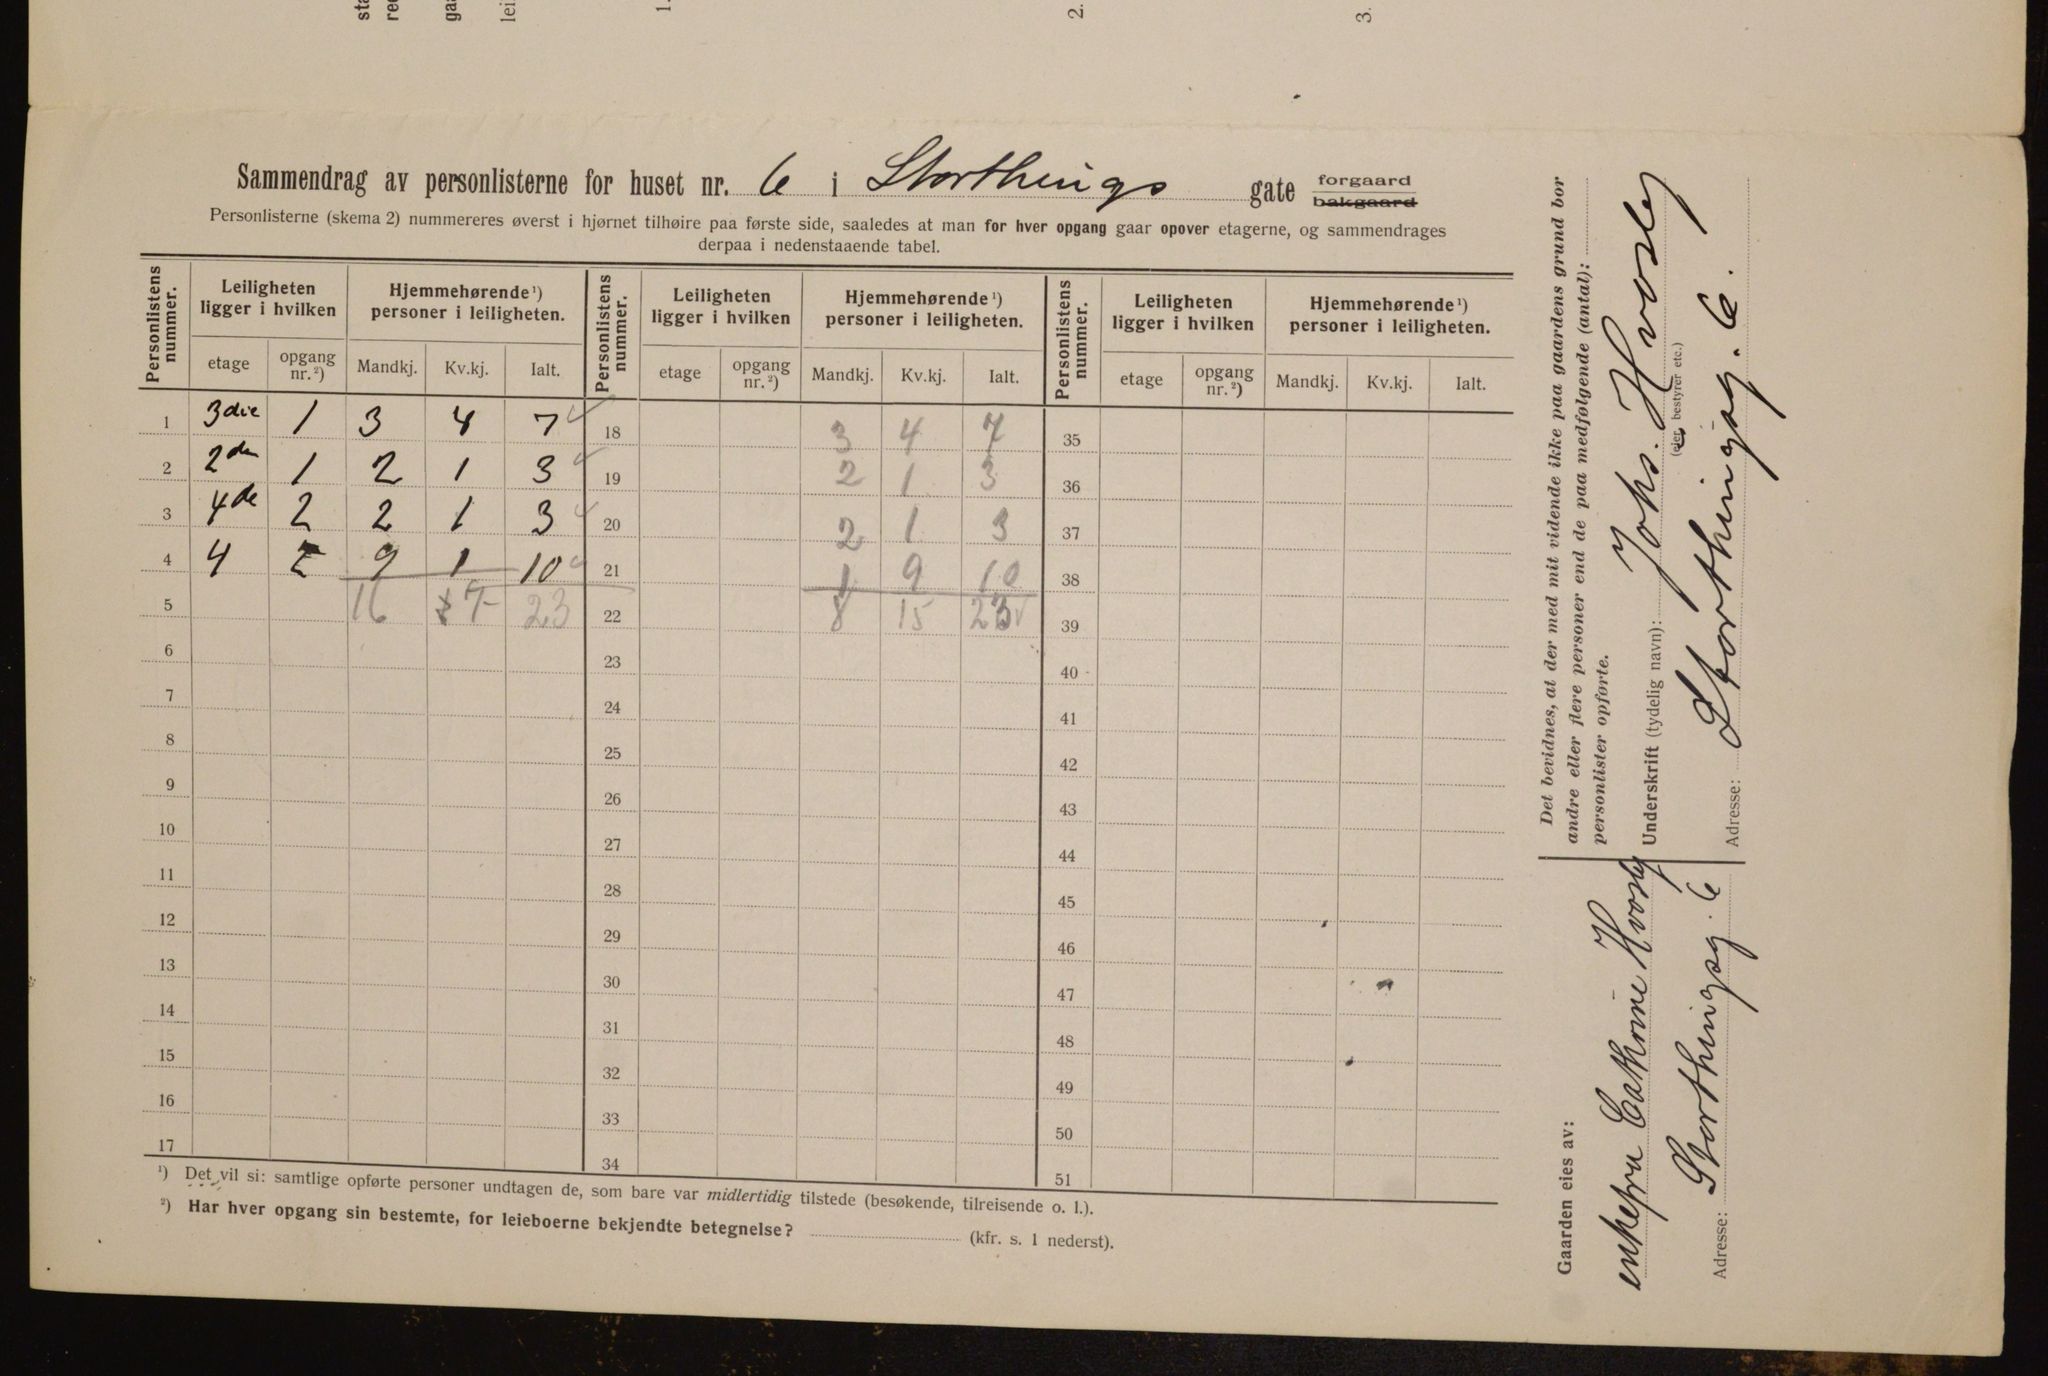 sta
re
ga
lei
1.
2.
3.
Sammendrag av personlisterne for huset nr. 6 i Storthings gate forgaard
bakgaard
Personlisterne (skema 2) nummereres øverst i hjørnet tilhøire paa første side, saaledes at man for hver opgang gaar opover etagerne, og sammendrages
derpaa i nedenstaaende tabel.
Personlistens nummer. Leiligheten ligger i hvilken Hjemmehørende¹) personer i leiligheten. Personlistens nummer. Leiligheten ligger i hvilken Hjemmehørende¹) personer i leiligheten. Personlistens nummer. Leiligheten ligger i hvilken Hjemmehørende¹) personer i leiligheten.
etage opgang nr.²) Mandkj. Kv.kj. Ialt. etage opgang nr.²) Mandkj. Kv.kj. Ialt. etage opgang nr.²) Mandkj. Kv.kj. Ialt.
1 3die 1 3 4 7 18 3 4 7 35
2 2den 1 2 1 3 19 2 1 3 36
3 4de 2 2 1 3 20 2 1 3 37
4 4 2 9 1 10 21 1 9 10 38
5 16 7 23 22 8 15 23 39
6 23 40
7 24 41
8 25 42
9 26 43
10 27 44
11 28 45
12 29 46
13 30 47
14 31 48
15 32 49
16 33 50
17 34 51
¹) Det vil si: samtlige opførte personer undtagen de, som bare var midlertidig tilstede (besøkende, tilreisende o. l.).
²) Har hver opgang sin bestemte, for leieboerne bekjendte betegnelse? (kfr. s. 1 nederst).
Det bevidnes, at der med mit vidende ikke paa gaardens grund bor
andre eller flere personer end de paa medfølgende (antal):
personlister opførte.
Underskrift (tydelig navn): Johs. Hvosley
(eier, bestyrer etc.)
Adresse: Storthingsg. 6.
Gaarden eies av:
enkefru Cathrine Hvosley
Adresse: Storthingsg. 6